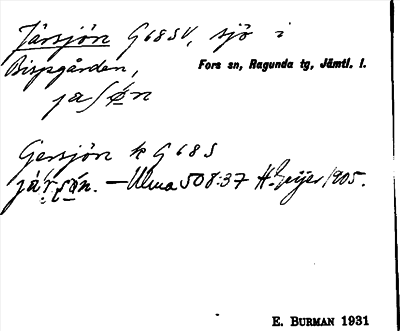 Järsjön G68SV, sjö i
Bispgården, Fors sn, Ragunda tg, Jämtl. l.
Gersjön k G68S
— Ulma 508:37 H. Geijer 1905.
E. BURMAN 1931